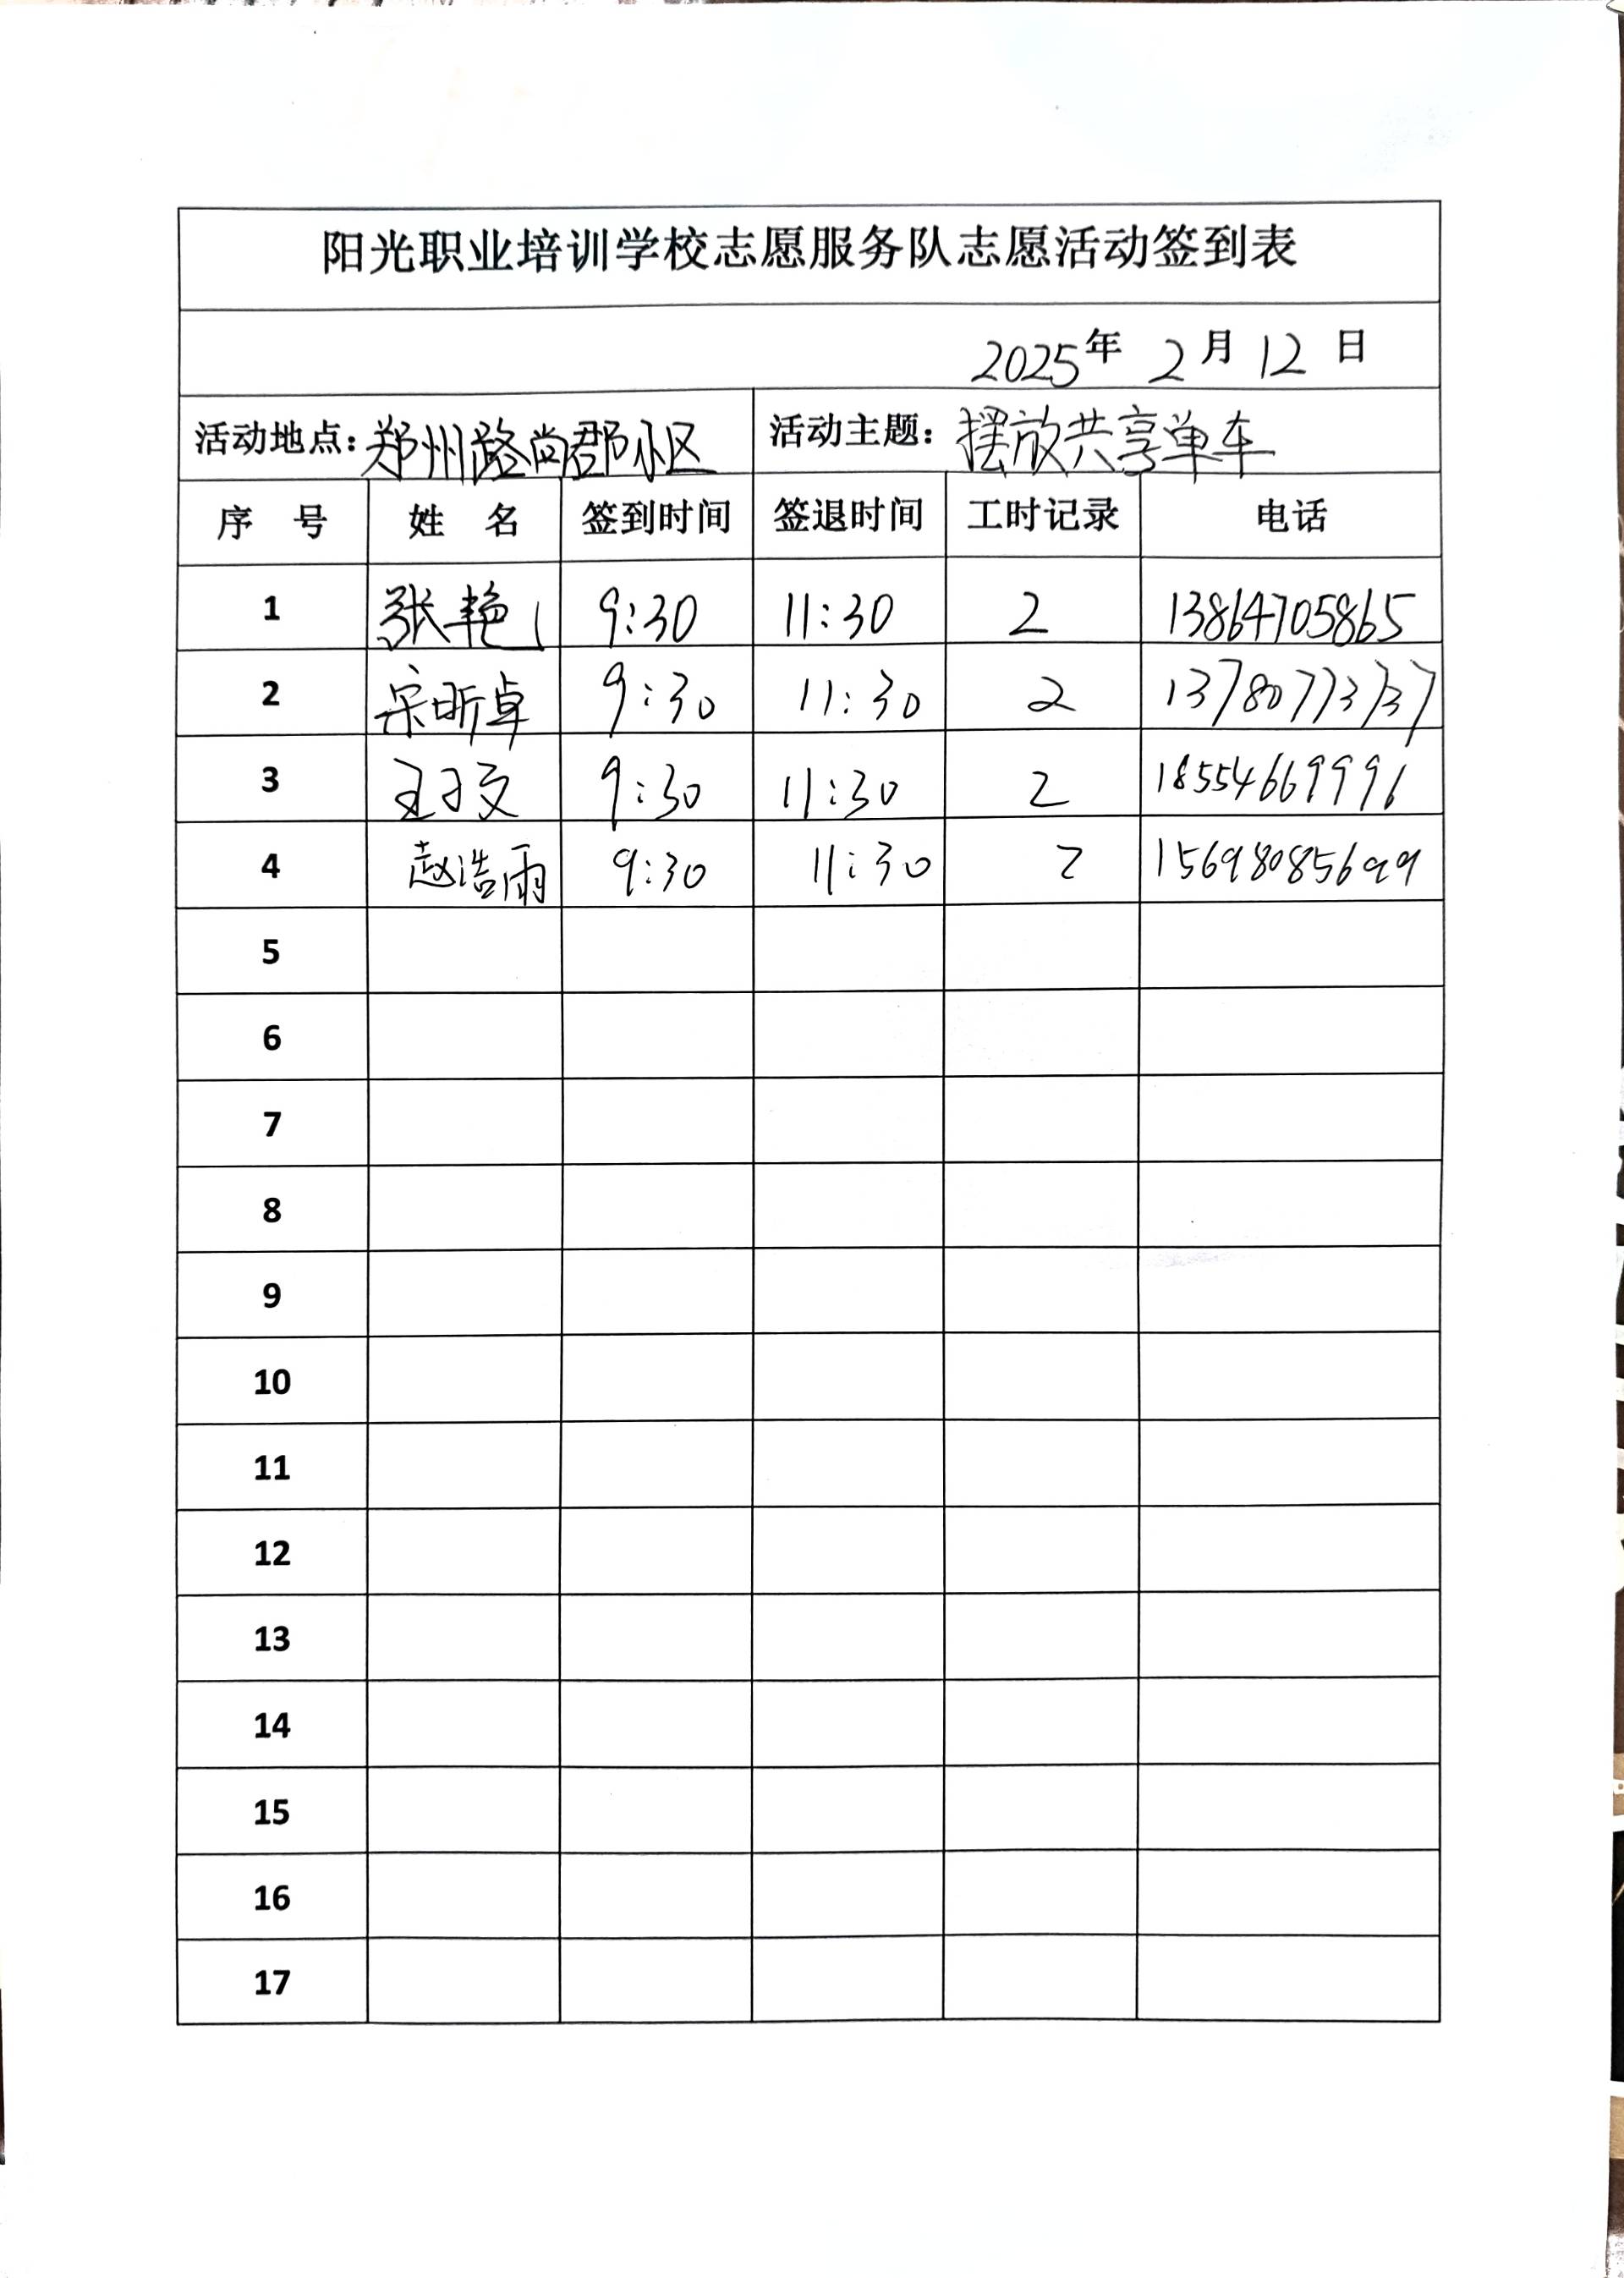 阳光职业培训学校志愿服务队志愿活动签到表
2025年 2月12日
活动地点:郑州路尚郡小区 活动主题:摆放共享单车
序 号 姓 名 签到时间 签退时间 工时记录 电话
1 张艳 9:30 11:30 2 13864705865
2 宋昕卓 9:30 11:30 2 13780773737
3 9:30 11:30 2 18554669996
4 赵浩雨 9:30 11:30 2 15698085699
5
6
7
8
9
10
11
12
13
14
15
16
17